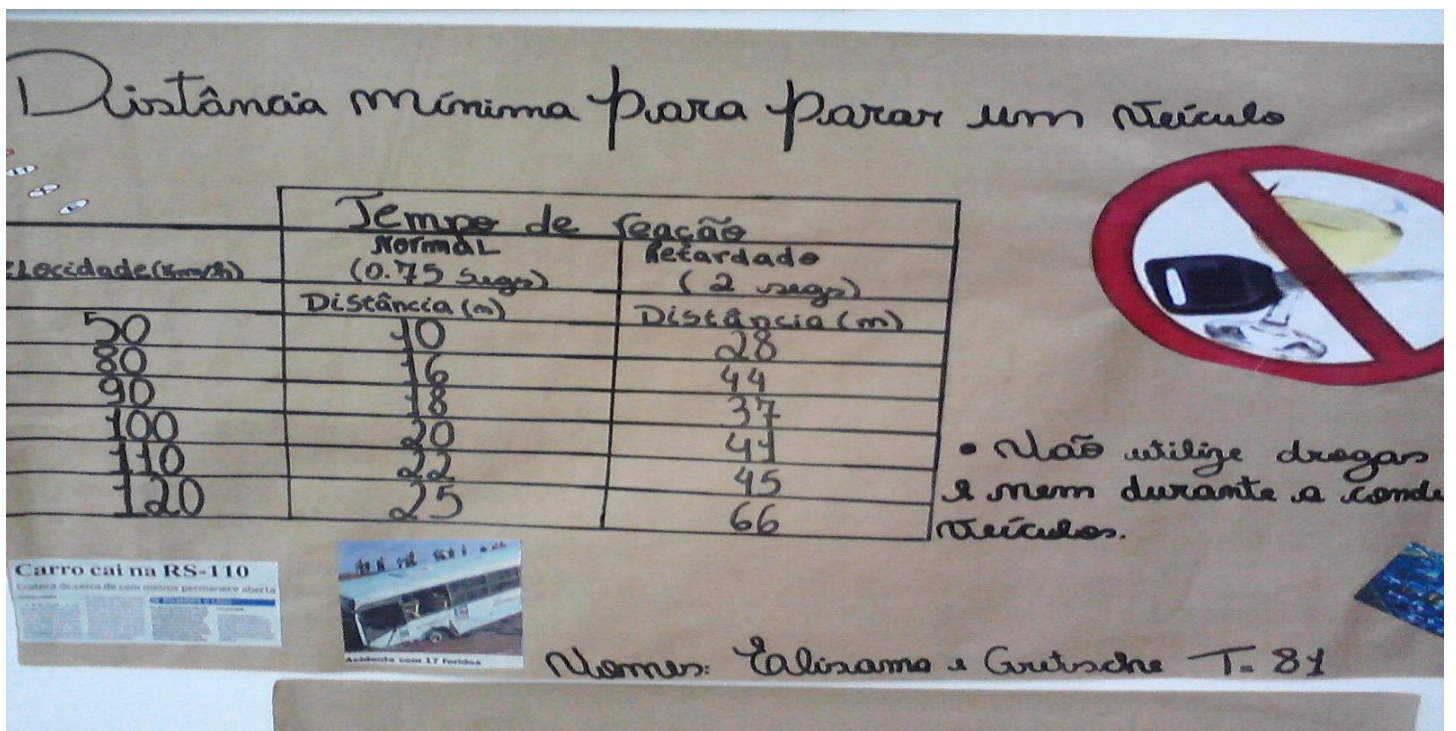 Distância mínima para parar um veículo
Tempo de reação
Normal
(0.75 segs)
Retardado
(2 segs)
elocidade (Km/h)
Distância (m)
Distância (m)
50 10 28
80 16 44
90 18 37
100 20 41
110 22 45
120 25 66
• Não utilize drogas
e nem durante a condu
veículos.
Carro cai na RS-110
Cratera de cerca de cem metros permanece aberta
Acidente com 17 feridos
Nomes: Talisama e Gretsche T. 81